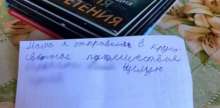 ТЕНИЯ
Маша я отправилась в круго
светное путешествие
целую